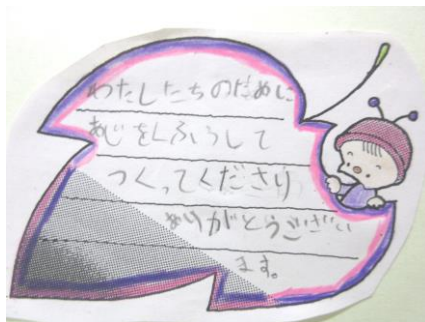 わたしたちのために
あじをくふうして
つくってくださり
ありがとうござい
ます。